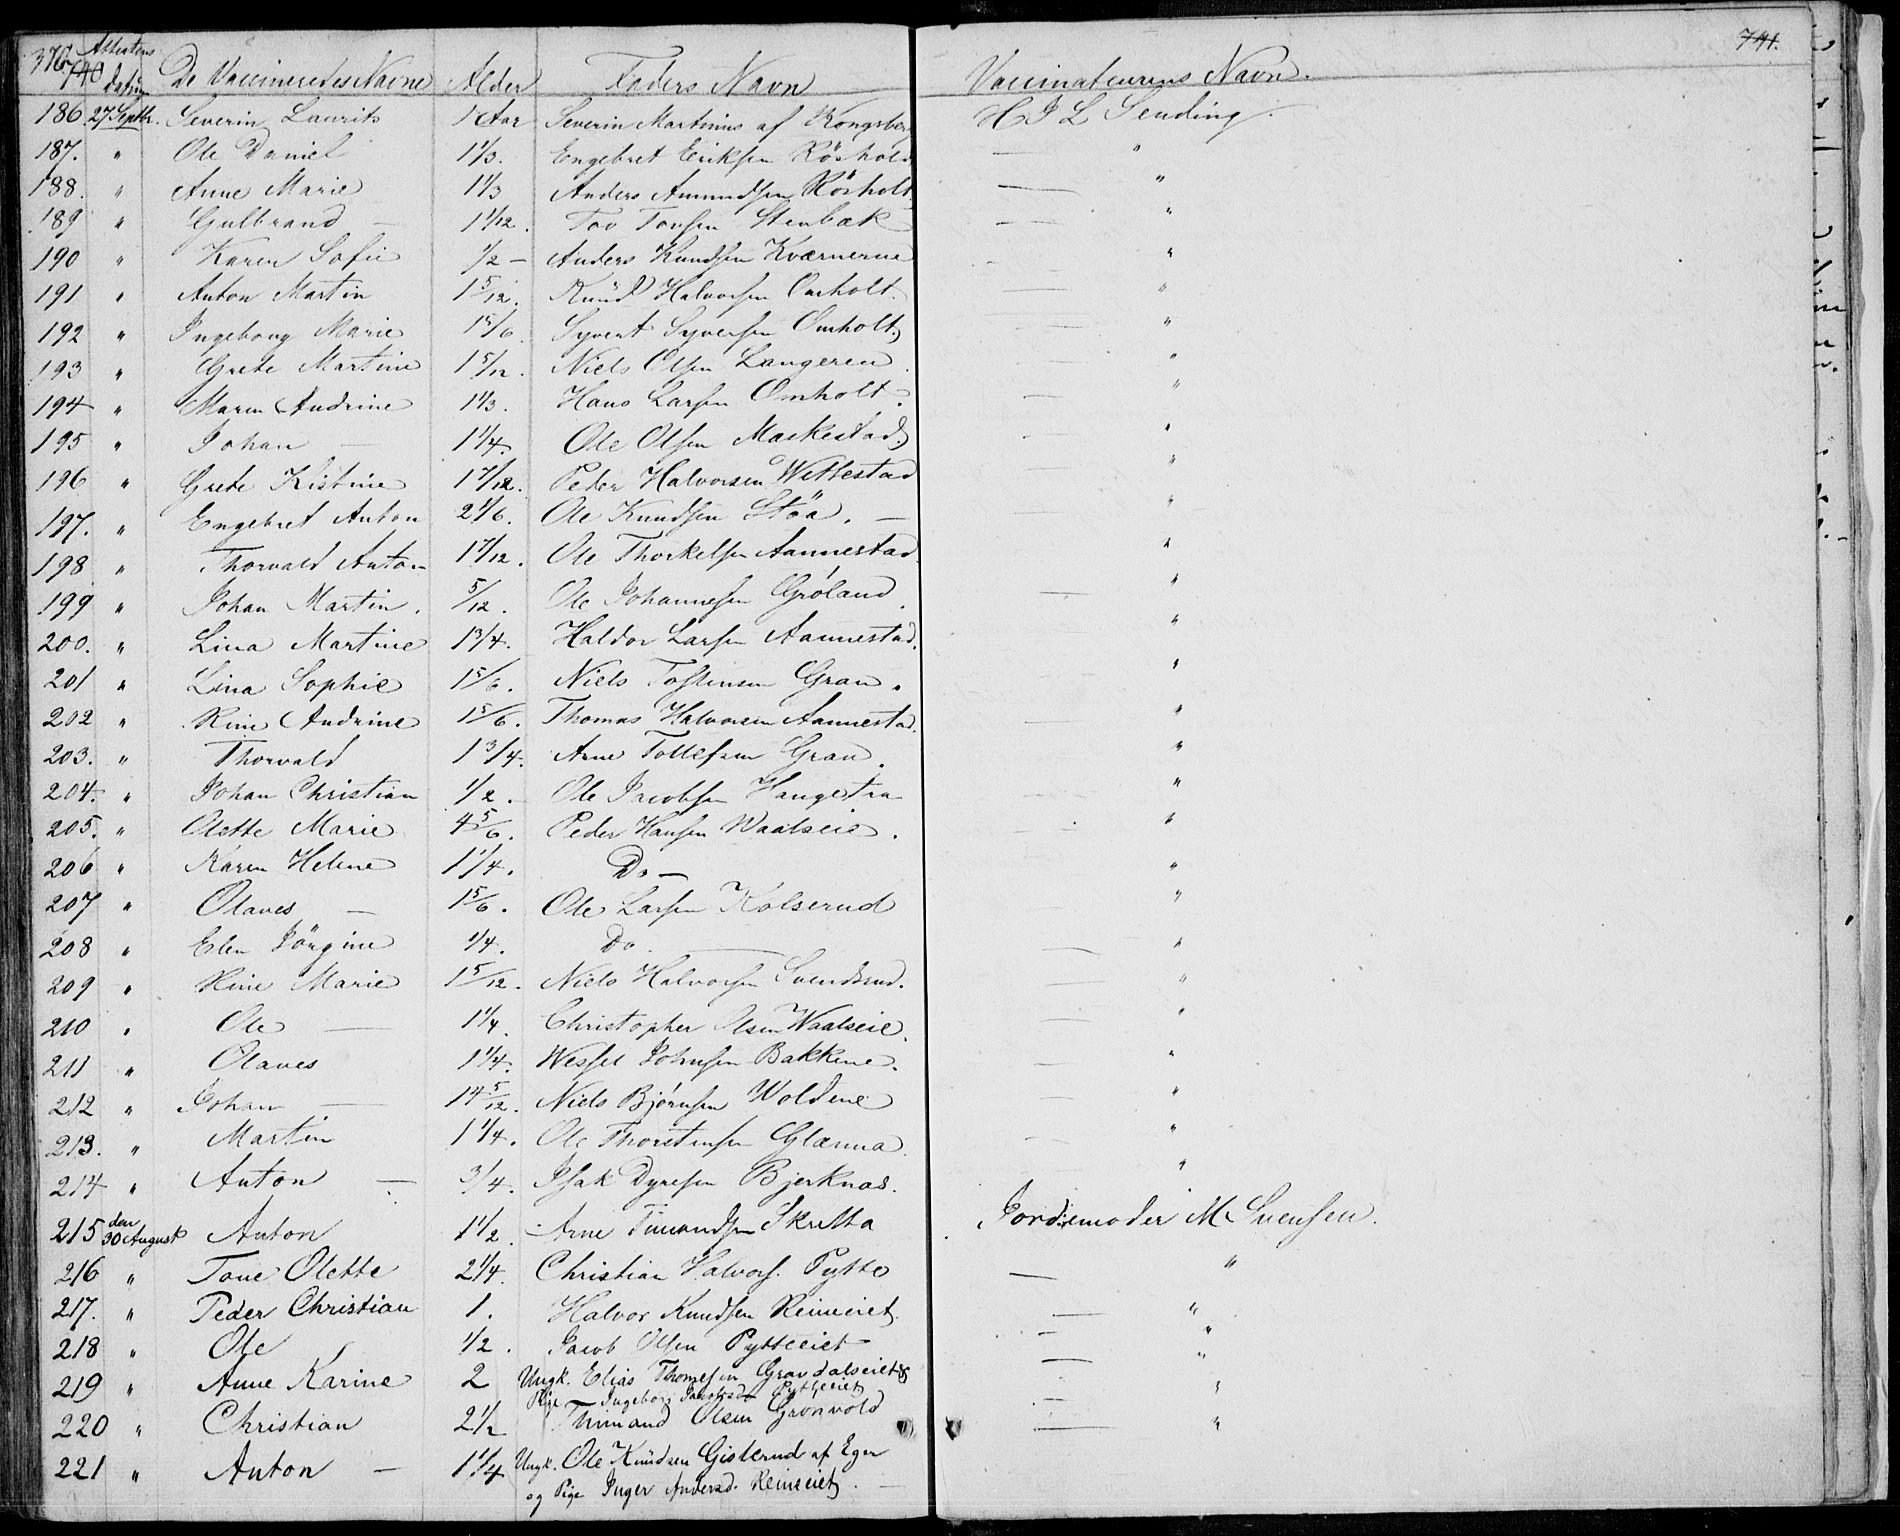 376 740 Attestens Datum De Vaccineredes Navne Alder Faders Navn Vaccinateurens Navn. 741.
186 27 Septbr. Severin Laurits 1 Aar Severin Martinius af Kongsberg H J L Sending.
187. " Ole Daniel 1 1/3. Engebret Eriksen Röshold — "
188. " Anne Marie 1 1/3 Anders Amundsen Rösholt — "
189 " Gulbrand — 1 1/12. Tov Tovsen Stenbæk — "
190 " Karen Sofie 1/2 — Anders Knudsen Kværnerne "
191 " Anton Martin 1 5/12. Knud Halvorsen Omholt. — "
192 " Ingeborg Marie 1 5/6 Syvert Syversen Omholt. — "
193 " Grete Martine 1 5/12. Niels Olsen Langeren. — "
194 " Maren Andrine 1 1/3. Hans Larsen Omholt. — "
195 " Johan — 1 1/4. Ole Olsen Maskestad. — "
196 " Grete Kistine 1 7/12. Peder Halvorsen Wettestad — "
197. " Engebret Anton 2 1/6. Ole Knudsen Stöa. — — "
198 " Thorvald Anton 1 7/12. Ole Thorkelsen Aannestad — "
199 " Johan Martin. 5/12. Ole Johannesen Gröland. — "
200. " Lina Martine 1 3/4. Haldor Larsen Aannestad. — "
201 " Lina Sophie 1 5/6. Niels Tostensen Gran. "
202 " Rine Andrine 1 5/6. Thomas Halvorsen Aannestad. — "
203. " Thorvald 1 3/4. Arne Tollefsen Gran. — "
204. " Johan Christian 1/2. Ole Jacobsen Haugestra — "
205. " Olette Marie 4 5/6. Peder Hansen Waalseie. — "
206 " Karen Helene 1 1/4. Do — — "
207 " Olaves — 1 5/6. Ole Larsen Kolserud — "
208 " Elen Jörgine 1/4. Do. — — "
209 " Rine Marie 1 5/12. Niels Halvorsen Svendsrud. — "
210 " Ole — 1 1/4. Christopher Olsen Waalseie. — "
211 " Olaves 1 1/4. Wessel Johnsen Bakkene. — "
212 " Johan — 14 5/12. Niels Bjørnsen Woldene — "
213. " Martin 1 1/4. Ole Thorstensen Glænna. — "
214 " Anton — 3/4. Isak Dyresen Bjerknæs. "
215 den 30 August Anton 1 1/2. Arne Timandsen Skrutta Jordemoder M Svensen.
216 " Tone Olette 2 1/4. Christian Halvors. Pytte — "
217. " Peder Christian 1. Halvor Knudsen Reineiet. — "
218 " Ole 1/2. Jacob Olsen Pytteeiet — "
219 " Anne Karine 2 Ungk. Elias Thomesen Gravdalseiet & — "
Pige Ingeborg Jacobsd. Pytteeiet
220 " Christian 2 1/2 Thimand Olsen Grönvold — "
221 " Anton — 1 1/4 Ungk. Ole Knudsen Gisterud af Eger
og Pige Inger Andersd. Reineeiet. —